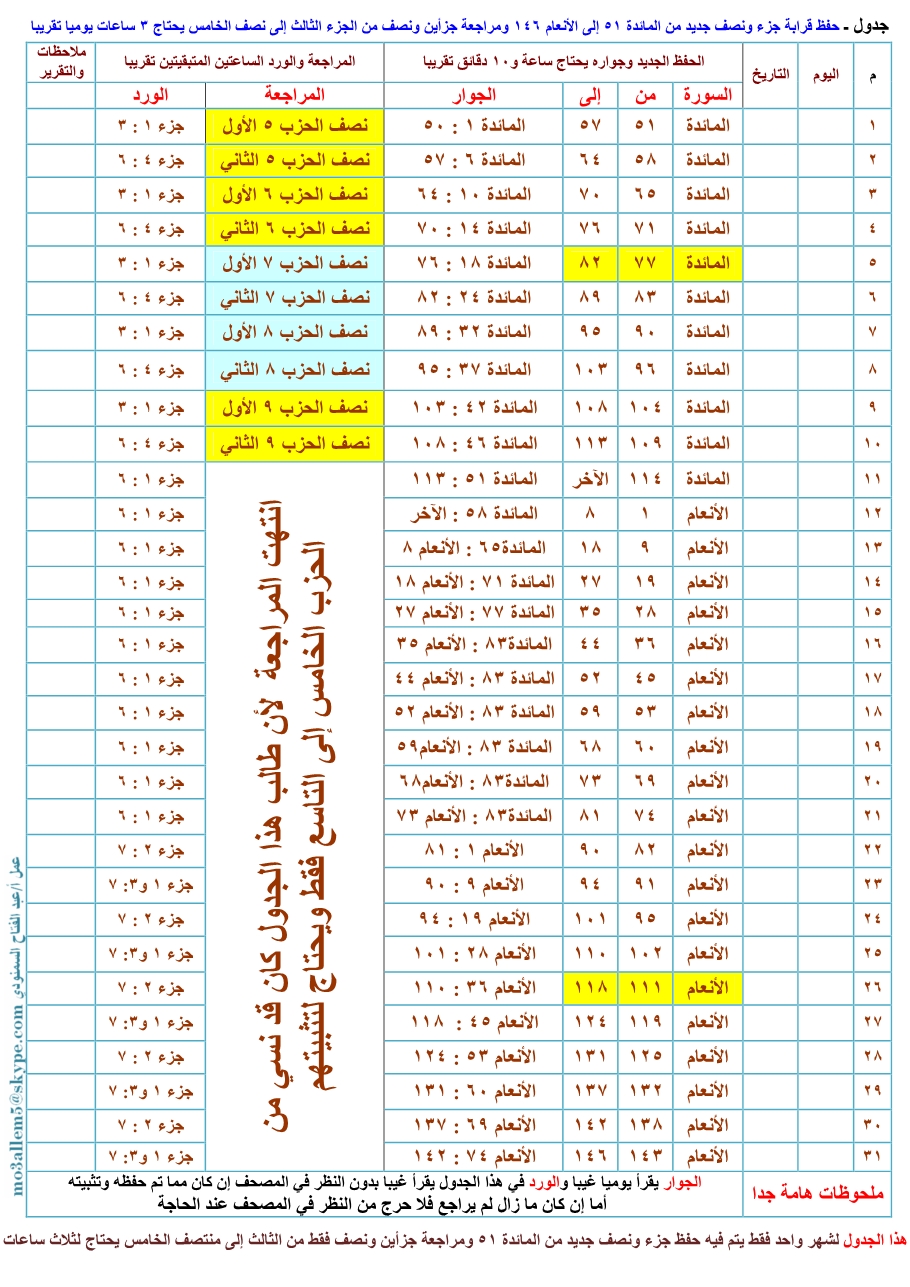 جدول ـ حفظ قرابة جزء ونصف جديد من المائدة ٥١ إلى الأنعام ١٤٦ ومراجعة جزأين ونصف من الجزء الثالث إلى نصف الخامس يحتاج ٣ ساعات يوميا تقريبا
م اليوم التاريخ الحفظ الجديد وجواره يحتاج ساعة و١٠ دقائق تقريبا المراجعة والورد الساعتين المتبقيتين تقريبا ملاحظات والتقرير
السورة من إلى الجوار المراجعة الورد
١ المائدة ٥١ ٥٧ المائدة ١ : ٥٠ نصف الحزب ٥ الأول جزء ١ : ٣
٢ المائدة ٥٨ ٦٤ المائدة ٦ : ٥٧ نصف الحزب ٥ الثاني جزء ٤ : ٦
٣ المائدة ٦٥ ٧٠ المائدة ١٠ : ٦٤ نصف الحزب ٦ الأول جزء ١ : ٣
٤ المائدة ٧١ ٧٦ المائدة ١٤ : ٧٠ نصف الحزب ٦ الثاني جزء ٤ : ٦
٥ المائدة ٧٧ ٨٢ المائدة ١٨ : ٧٦ نصف الحزب ٧ الأول جزء ١ : ٣
٦ المائدة ٨٣ ٨٩ المائدة ٢٤ : ٨٢ نصف الحزب ٧ الثاني جزء ٤ : ٦
٧ المائدة ٩٠ ٩٥ المائدة ٣٢ : ٨٩ نصف الحزب ٨ الأول جزء ١ : ٣
٨ المائدة ٩٦ ١٠٣ المائدة ٣٧ : ٩٥ نصف الحزب ٨ الثاني جزء ٤ : ٦
٩ المائدة ١٠٤ ١٠٨ المائدة ٤٢ : ١٠٣ نصف الحزب ٩ الأول جزء ١ : ٣
١٠ المائدة ١٠٩ ١١٣ المائدة ٤٦ : ١٠٨ نصف الحزب ٩ الثاني جزء ٤ : ٦
١١ المائدة ١١٤ الآخر المائدة ٥١ : ١١٣ جزء ١ : ٦
١٢ الأنعام ١ ٨ المائدة ٥٨ : الآخر جزء ١ : ٦
١٣ الأنعام ٩ ١٨ المائدة٦٥ : الأنعام ٨ جزء ١ : ٦
١٤ الأنعام ١٩ ٢٧ المائدة ٧١ : الأنعام ١٨ جزء ١ : ٦
١٥ الأنعام ٢٨ ٣٥ المائدة ٧٧ : الأنعام ٢٧ جزء ١ : ٦
١٦ الأنعام ٣٦ ٤٤ المائدة٨٣ : الأنعام ٣٥ جزء ١ : ٦
١٧ الأنعام ٤٥ ٥٢ المائدة ٨٣ : الأنعام ٤٤ جزء ١ : ٦
١٨ الأنعام ٥٣ ٥٩ المائدة ٨٣ : الأنعام ٥٢ جزء ١ : ٦
١٩ الأنعام ٦٠ ٦٨ المائدة ٨٣ : الأنعام٥٩ جزء ١ : ٦
٢٠ الأنعام ٦٩ ٧٣ المائدة٨٣ : الأنعام٦٨ جزء ١ : ٦
٢١ الأنعام ٧٤ ٨١ المائدة٨٣ : الأنعام ٧٣ جزء ١ : ٦
٢٢ الأنعام ٨٢ ٩٠ الأنعام ١ : ٨١ جزء ٢ : ٧
٢٣ الأنعام ٩١ ٩٤ الأنعام ٩ : ٩٠ جزء ١ و٣: ٧
٢٤ الأنعام ٩٥ ١٠١ الأنعام ١٩ : ٩٤ جزء ٢ : ٧
٢٥ الأنعام ١٠٢ ١١٠ الأنعام ٢٨ : ١٠١ جزء ١ و٣: ٧
٢٦ الأنعام ١١١ ١١٨ الأنعام ٣٦ : ١١٠ جزء ٢ : ٧
٢٧ الأنعام ١١٩ ١٢٤ الأنعام ٤٥ : ١١٨ جزء ١ و٣: ٧
٢٨ الأنعام ١٢٥ ١٣١ الأنعام ٥٣ : ١٢٤ جزء ٢ : ٧
٢٩ الأنعام ١٣٢ ١٣٧ الأنعام ٦٠ : ١٣١ جزء ١ و٣: ٧
٣٠ الأنعام ١٣٨ ١٤٢ الأنعام ٦٩ : ١٣٧ جزء ٢ : ٧
٣١ الأنعام ١٤٣ ١٤٦ الأنعام ٧٤ : ١٤٢ جزء ١ و٣: ٧
انتهت المراجعة لأن طالب هذا الجدول كان قد نسي من
الحزب الخامس إلى التاسع فقط ويحتاج لتثبيتهم
ملحوظات هامة جدا
الجوار يقرأ يوميا غيبا والورد في هذا الجدول يقرأ غيبا بدون النظر في المصحف إن كان مما تم حفظه وتثبيته
أما إن كان ما زال لم يراجع فلا حرج من النظر في المصحف عند الحاجة
هذا الجدول لشهر واحد فقط يتم فيه حفظ جزء ونصف جديد من المائدة ٥١ ومراجعة جزأين ونصف فقط من الثالث إلى منتصف الخامس يحتاج لثلاث ساعات
عمل أ/عبد الفتاح السمنودي mo3allem5@skype.com